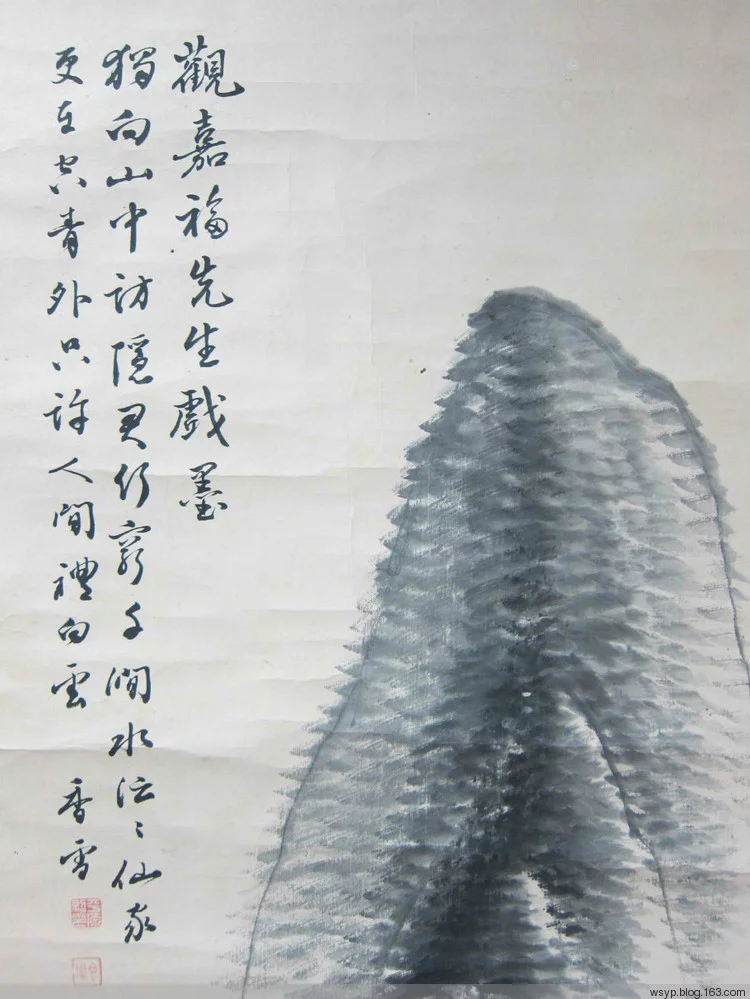 觀嘉福先生戲墨
獨向山中訪隱君行窮千澗水沄〻仙家
更在空青外只許人間禮白雲
香雪
wsyp.blog.163.com